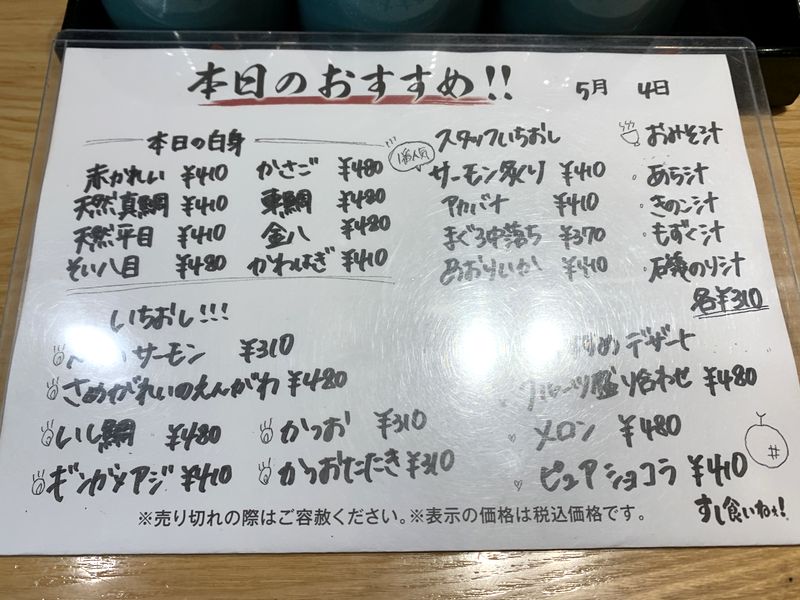 本日のおすすめ!!
5月 4日
本日の白身
赤かれい ¥410
天然真鯛 ¥410
天然平目 ¥410
そい八目 ¥480
かさご ¥480
東鯛 ¥480
金八 ¥480
かわはぎ ¥410
1番人気
スタッフいちおし
サーモン炙り ¥410
アカバナ ¥410
まぐろ中落ち ¥370
あおりいか ¥410
おみそ汁
・あら汁
・きのこ汁
・もずく汁
・石磯のり汁
各¥310
いちおし!!!
サーモン ¥310
さめがれいのえんがわ ¥480
いし鯛 ¥480
ギンガメアジ ¥410
かつお ¥310
かつおたたき ¥310
すめデザート
フルーツ盛り合わせ ¥480
メロン ¥480
ピュアショコラ ¥410
すし食いねぇ!
※売り切れの際はご容赦ください。※表示の価格は税込価格です。